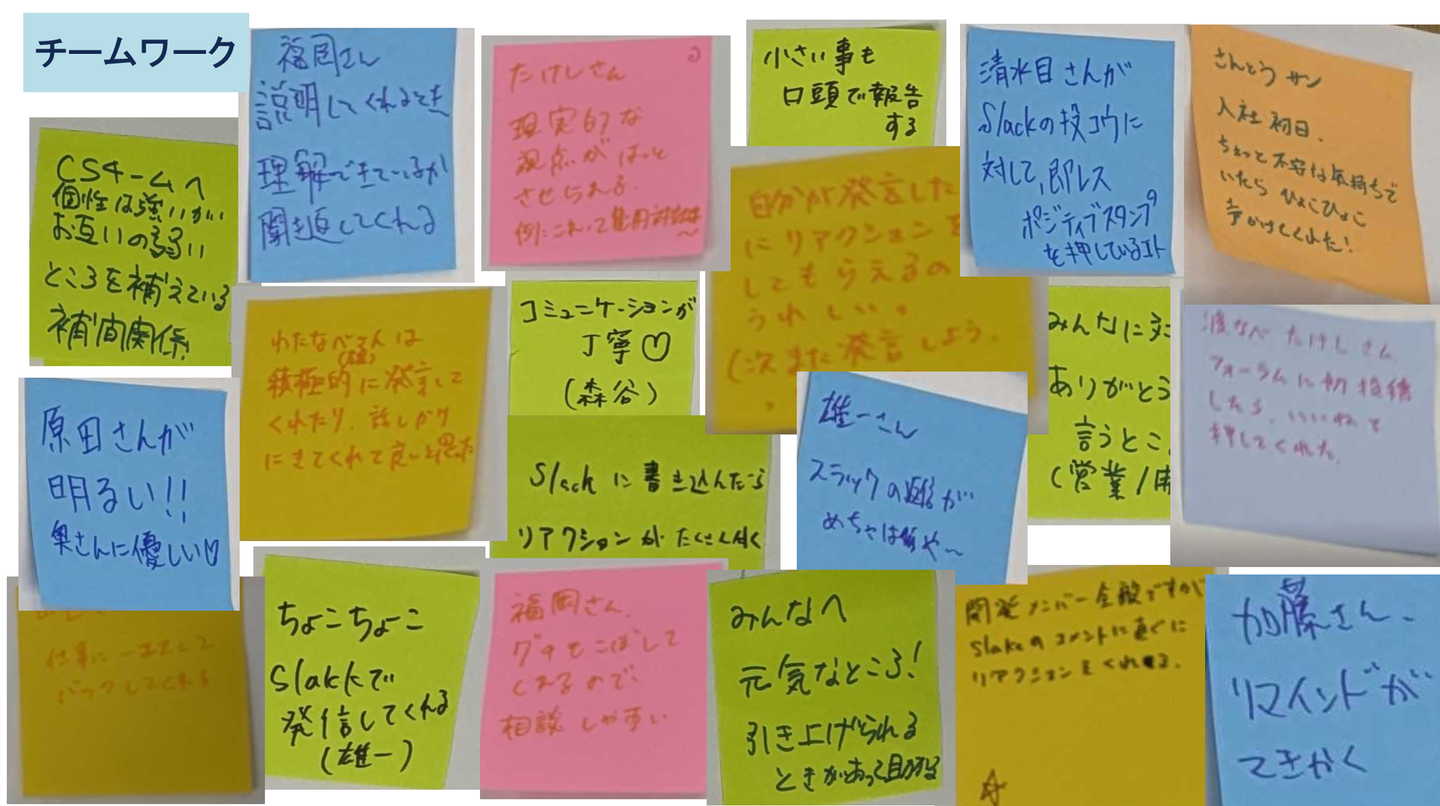 チームワーク
福岡さん
説明してくれるとき
理解できているか
聞き返してくれる
たけしさん
現実的な
視点がはっと
させられる。
例:これって費用対効果
〜
小さい事も
口頭で報告
する
清水目さんが
Slackの投コウに
対して、即レス
ポジティブスタンプ
を押しているコト
さんとう サン
入社初日、
ちょっと不安な気持ちで
いたら ひょこひょこ
声かけてくれた!
CSチームへ
個性は強いがい
お互いの弱い
ところを補えている
補間関係!
わたなべさんは
(雄)
積極的に発言して
くれたり、話しかけ
にきてくれて良いと思った
コミュニケーションが
丁寧♡
(森谷)
自分が発言した
にリアクションを
してもらえるの
うれしい。
(次また発言しよう。
みんなに対
ありがとう
言うとこ
(営業/開
渡なべ たけしさん
フォーラムに初投稿
したら、いいねを
押してくれた。
原田さんが
明るい!!
奥さんに優しい♡
Slackに書き込んだら
リアクションがたくさん付く
雄一さん
スラックの返信が
めちゃはやや〜
仕事に一生
バックしてくれる
ちょこちょこ
Slakkで
発信してくれる
(雄一)
福岡さん、
グチもこぼして
くれるので、
相談しやすい
みんなへ
元気なところ!
引き上げられる
ときがあって助かる
開発メンバー全般ですが
Slakeのコメントに直ぐに
リアクションをくれる。
☆
加藤さん、
リマインドが
てきかく